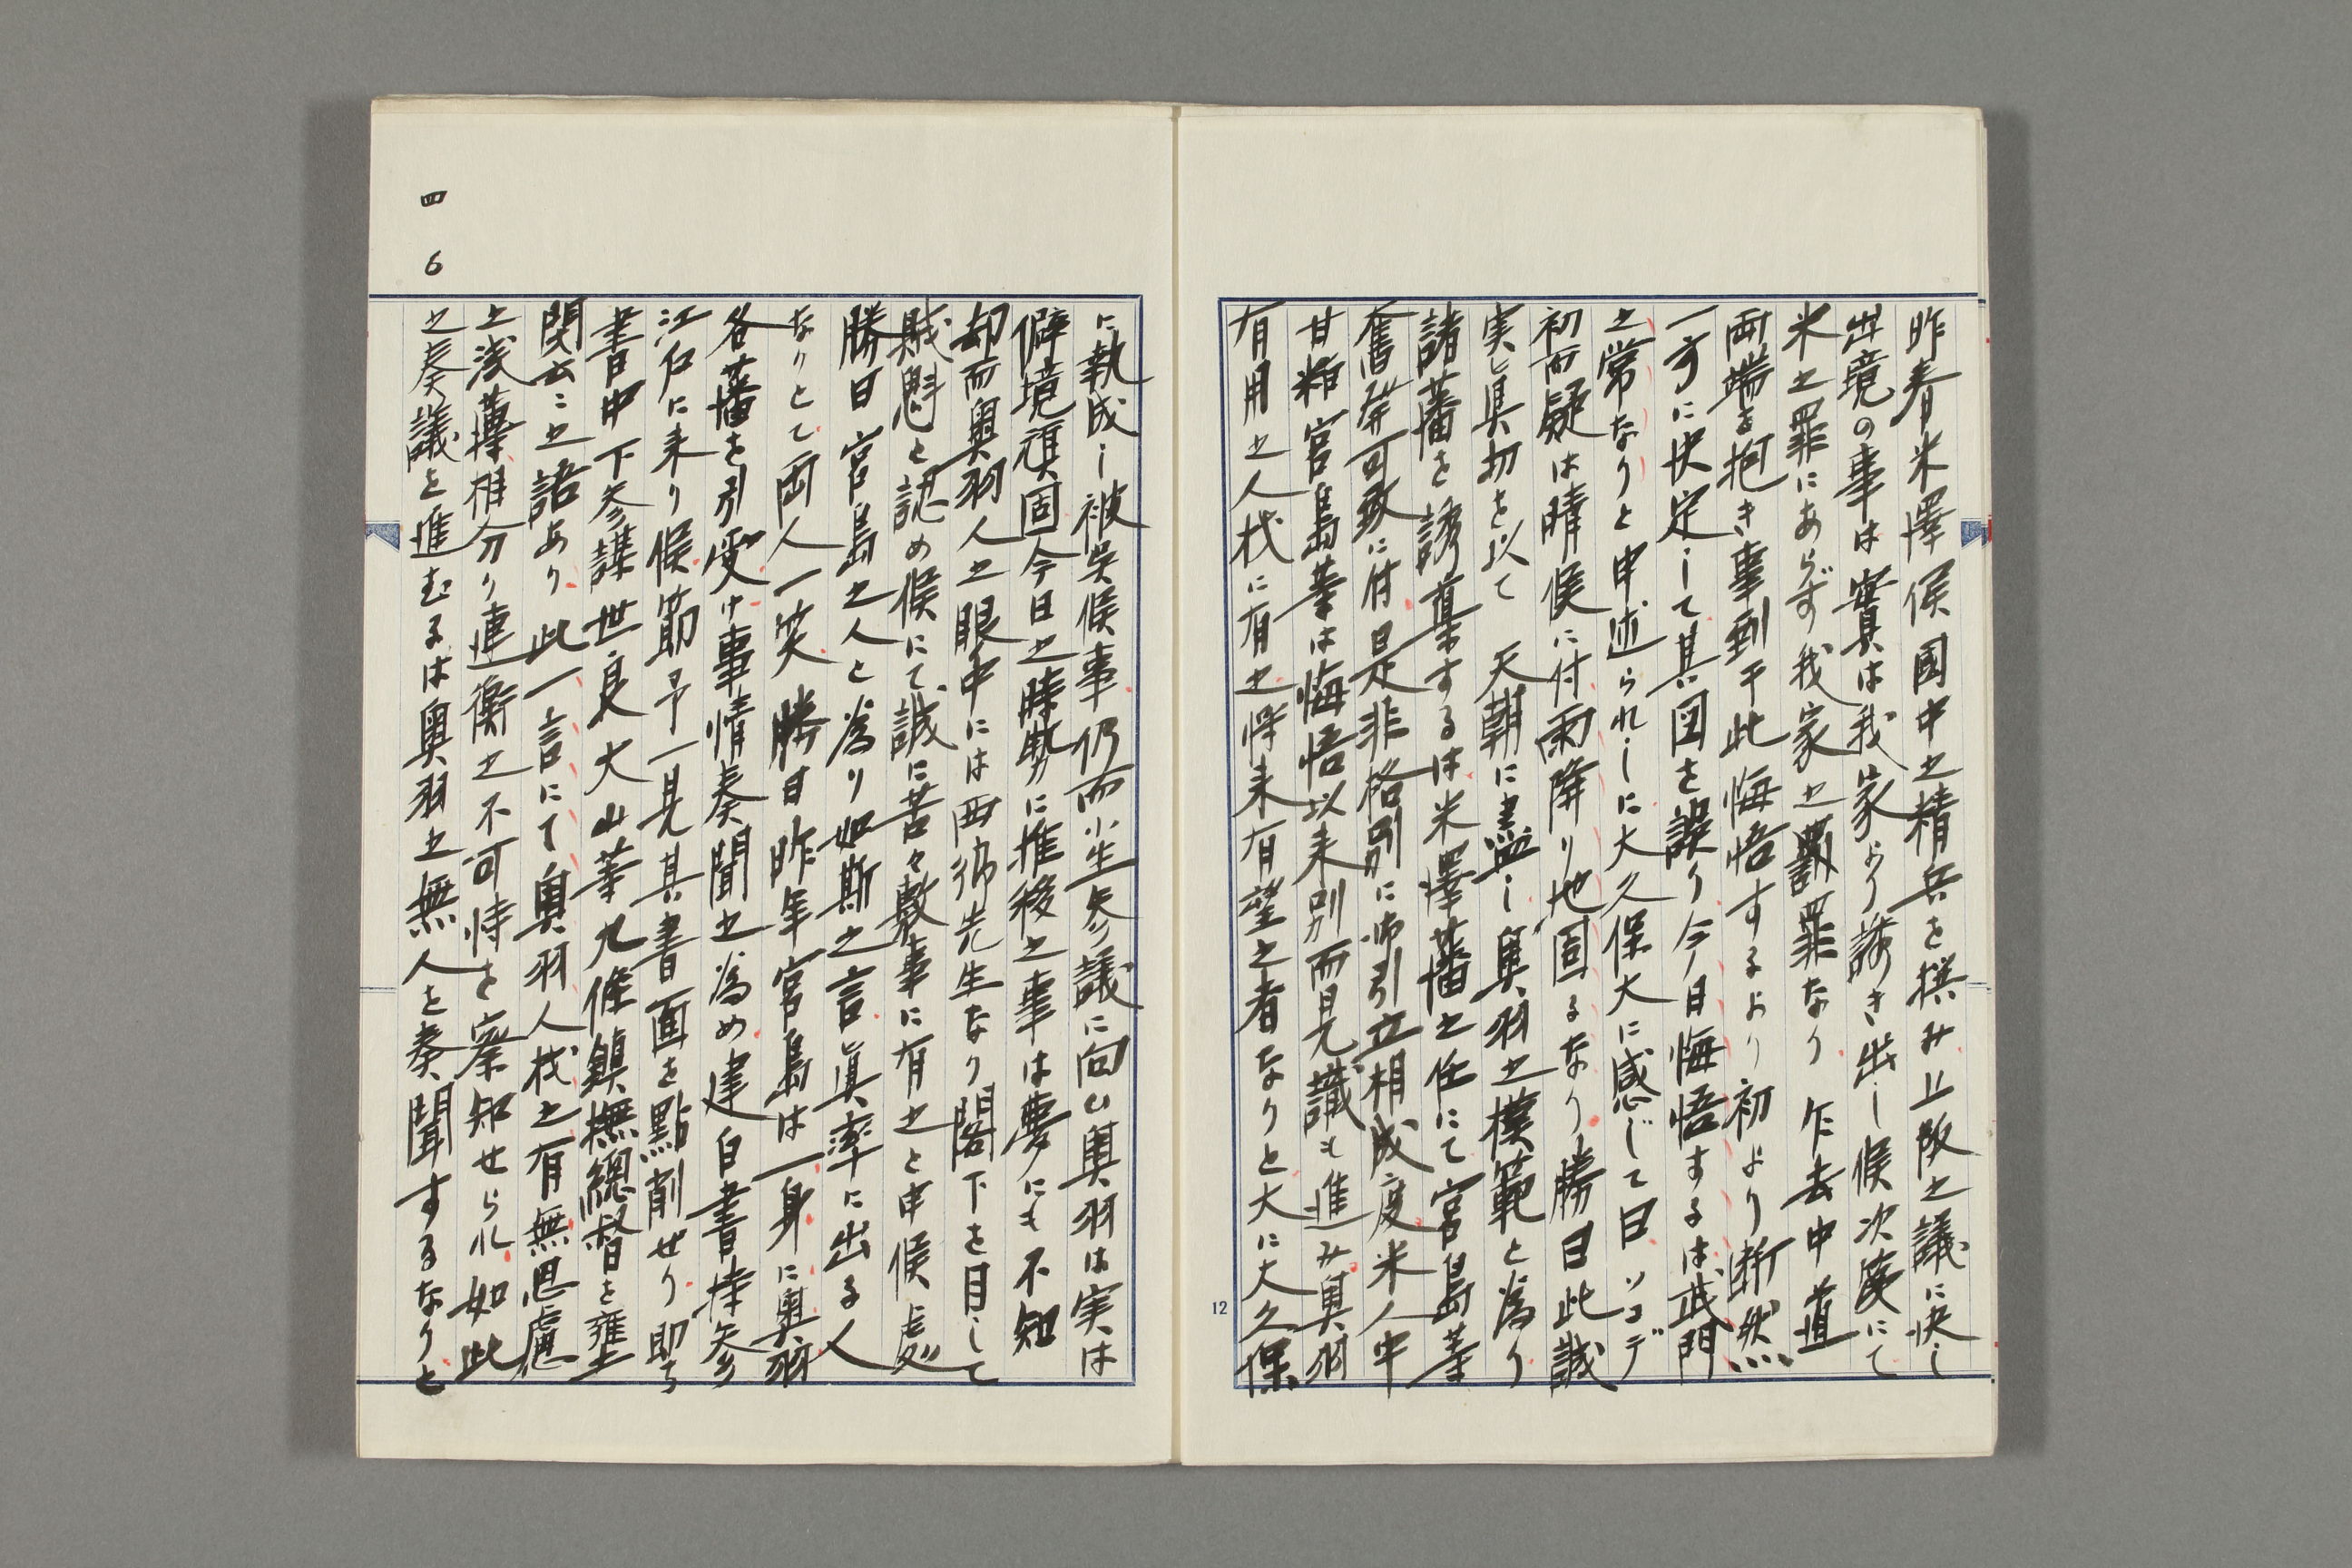 昨春米澤侯國中之精兵を撰み上阪之議に決し
出境の事は實は我家より誘き出し候次第にて
米之罪にあらず我家之罰罪なり 乍去中道
両端を抱き事到于此悔悟するより初より断然
一方に決定して其図を誤り今日悔悟するは武門
之常なりと申述られしに大久保大に感じて曰ソコデ
初而疑は晴候に付雨降り地固るなり勝曰此誠
実と真切を以て 天朝に盡し奥羽之模範と為り
諸藩を誘導するは米澤藩之任にて宮島等
奮発可致に付是非格別に御引立相成度米人中
甘粕宮島等は悔悟以来別而見識も進み奥羽
有用之人材に有之将来有望之者なりと大に大久保
に執成し被呉候事仍而小生参議に向ひ奥羽は実は
僻境頑固今日之時勢に推移之事は夢にも不知
却而奥羽人之眼中には西郷先生なり閣下を目して
賊魁と認め候にて誠に苦々敷事に有之と申候處
勝曰宮島之人と為り如斯之言眞率に出る人
なりとて両人一笑 勝曰昨年宮島は一身に奥羽
各藩を引受け事情奏聞之為め建白書持参
江戸に来り候節予一見其書面を點削せり即ち
書中下参謀世良大山等九條鎮撫總督を壅
閉云々之語あり此一言にて奥羽人材之有無思慮
之浅薄相分り連衡之不可恃を察知せられ如此
之奏議を進むるは奥羽之無人を奏聞するなりと
四 6
12